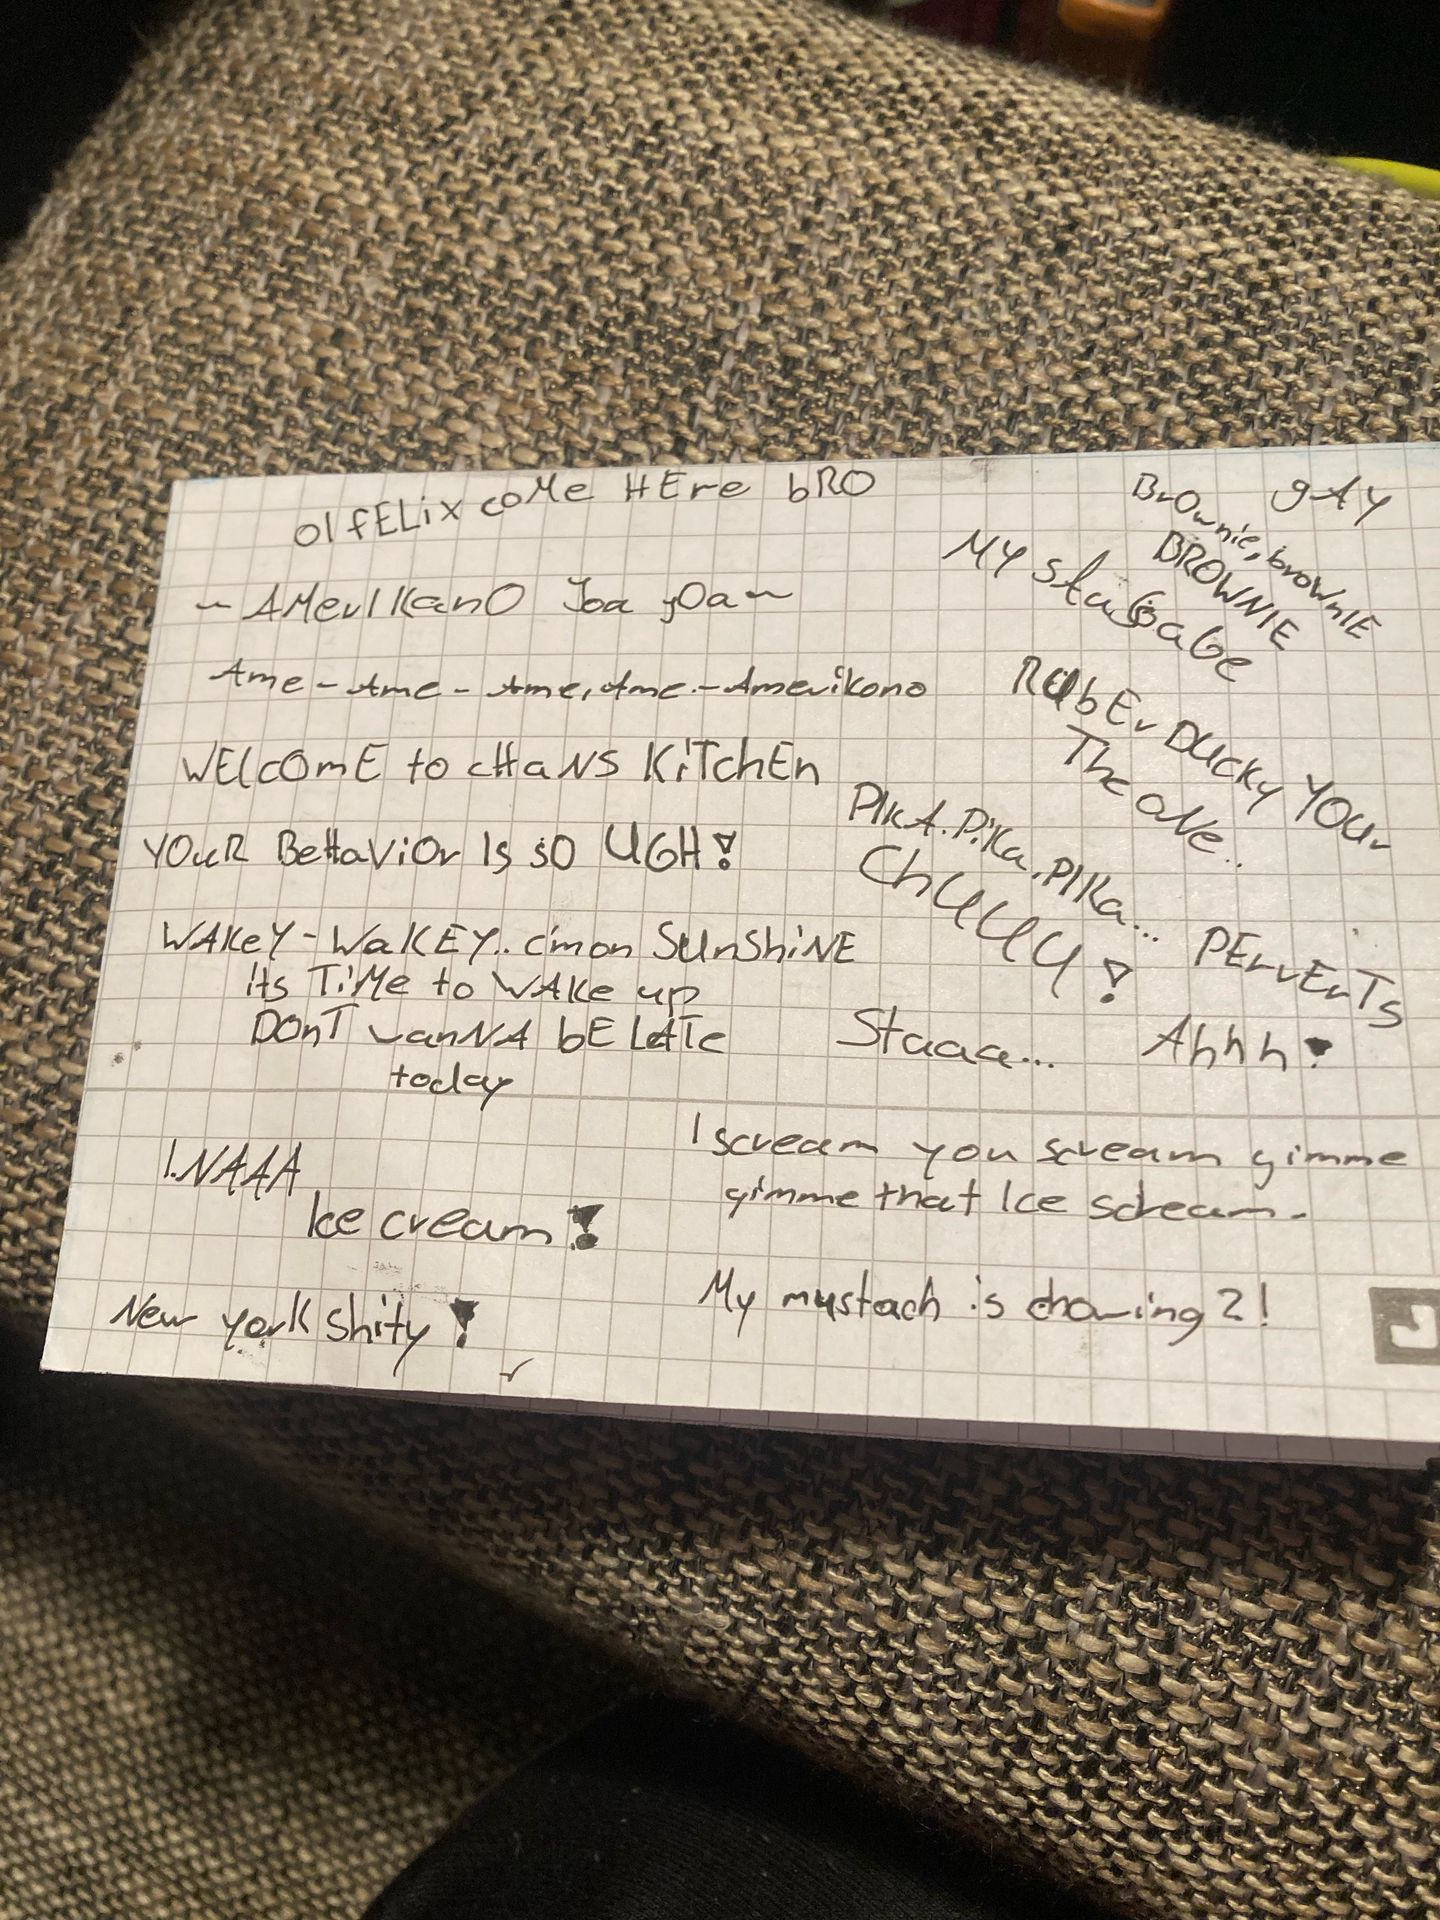 OI FELix coMe HEre bRO
~ AMerIKanO Joa yOa ~
Ame - Ame - Ame, Ame - Amerikono
WElcOmE to cHaNS KiTchEn
YOuR BeHaViOr Is sO UGH!
WAKeY - WaKEY.. c'mon SUnShiNE
its TiMe to WAKe up
DOnT wanNA bE LATe
today
1.NAAA
Ice cream!
New york shity!
gAY
BrOwnie, browNIE
BROWNIE
MY
RUbEr DUcky YOur
The oNe..
PIKA. PiKa. PIKa...
ChUUU!
PErvErTs
Staaa...
Ahhh!
I scream you scream gimme
gimme that Ice scream.
My mystach is showing?!